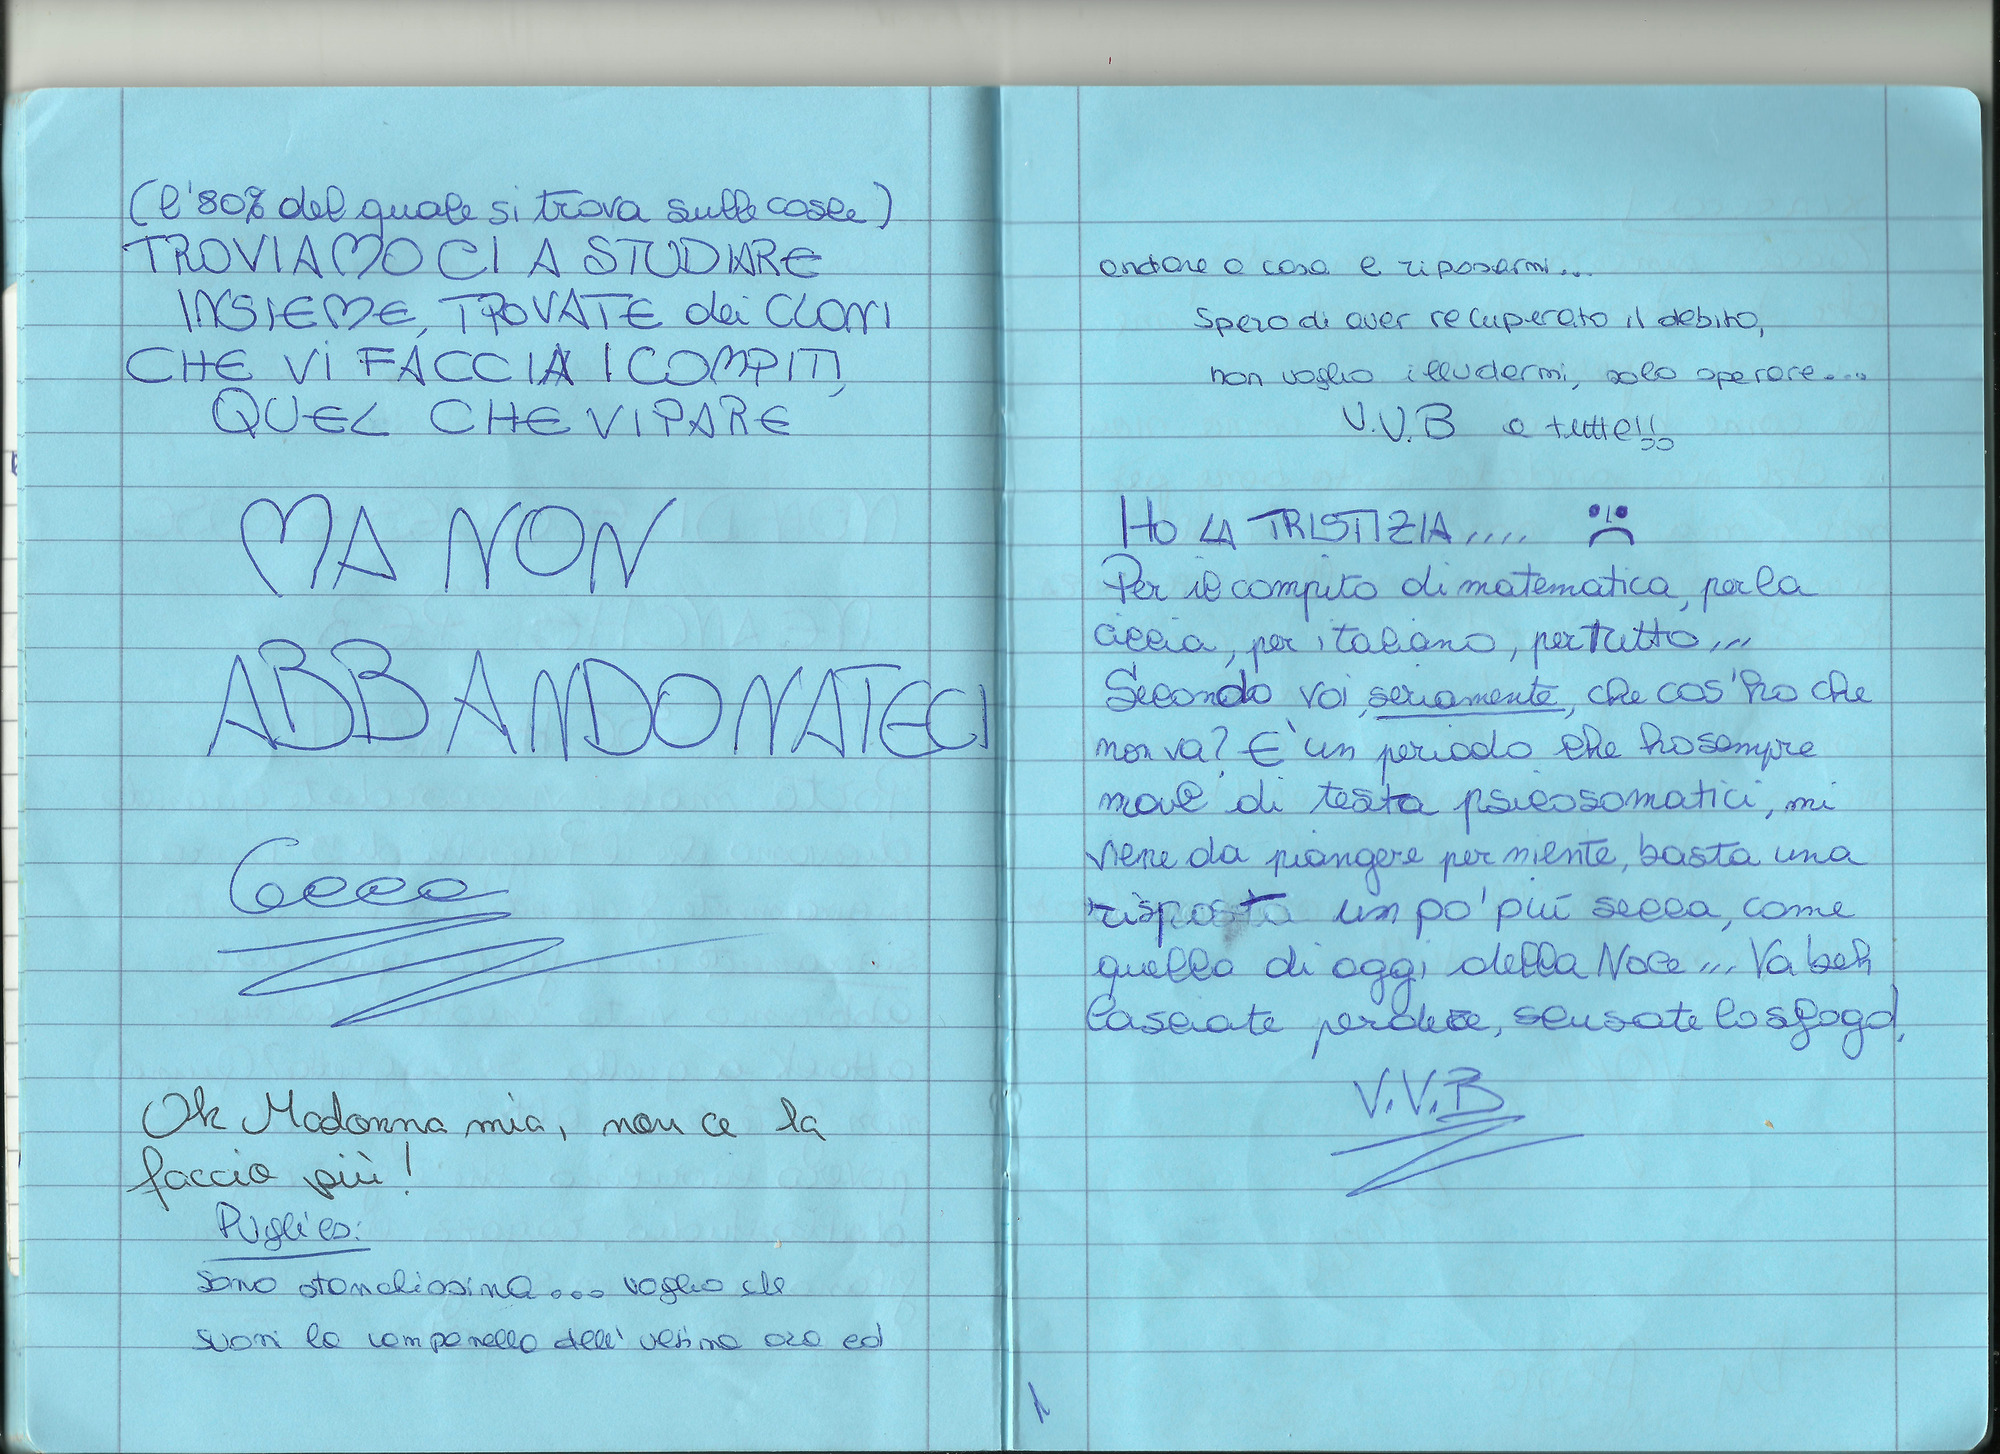 (l'80% del quale si trova sulle cosce)
TROVIAMOCI A STUDIARE
INSIEME, TROVATE dei CLONI
CHE VI FACCIA I COMPITI,
QUEL CHE VI PARE
MA NON
ABBANDONATECI
Ceee
Oh Madonna mia, non ce la
faccio più!
Puglies:
sono stanchissima... voglio che
suoni la campanella dell'ultima ora ed
andare a casa e riposarmi...
Spero di aver recuperato il debito,
non voglio illudermi, solo operare....
V.V.B a tutte!!
Ho LA TRISTIZIA....
Per il compito di matematica, per la
ciccia, per italiano, per tutto...
Secondo voi, seriamente, che cos'ho che
non va? E' un periodo che ho sempre
mal di testa psicosomatici, mi
viene da piangere per niente, basta una
risposta un po' più secca, come
quella di oggi della Noce... Va beh
lasciate perdere, scusate lo sfogo,
V.V.B